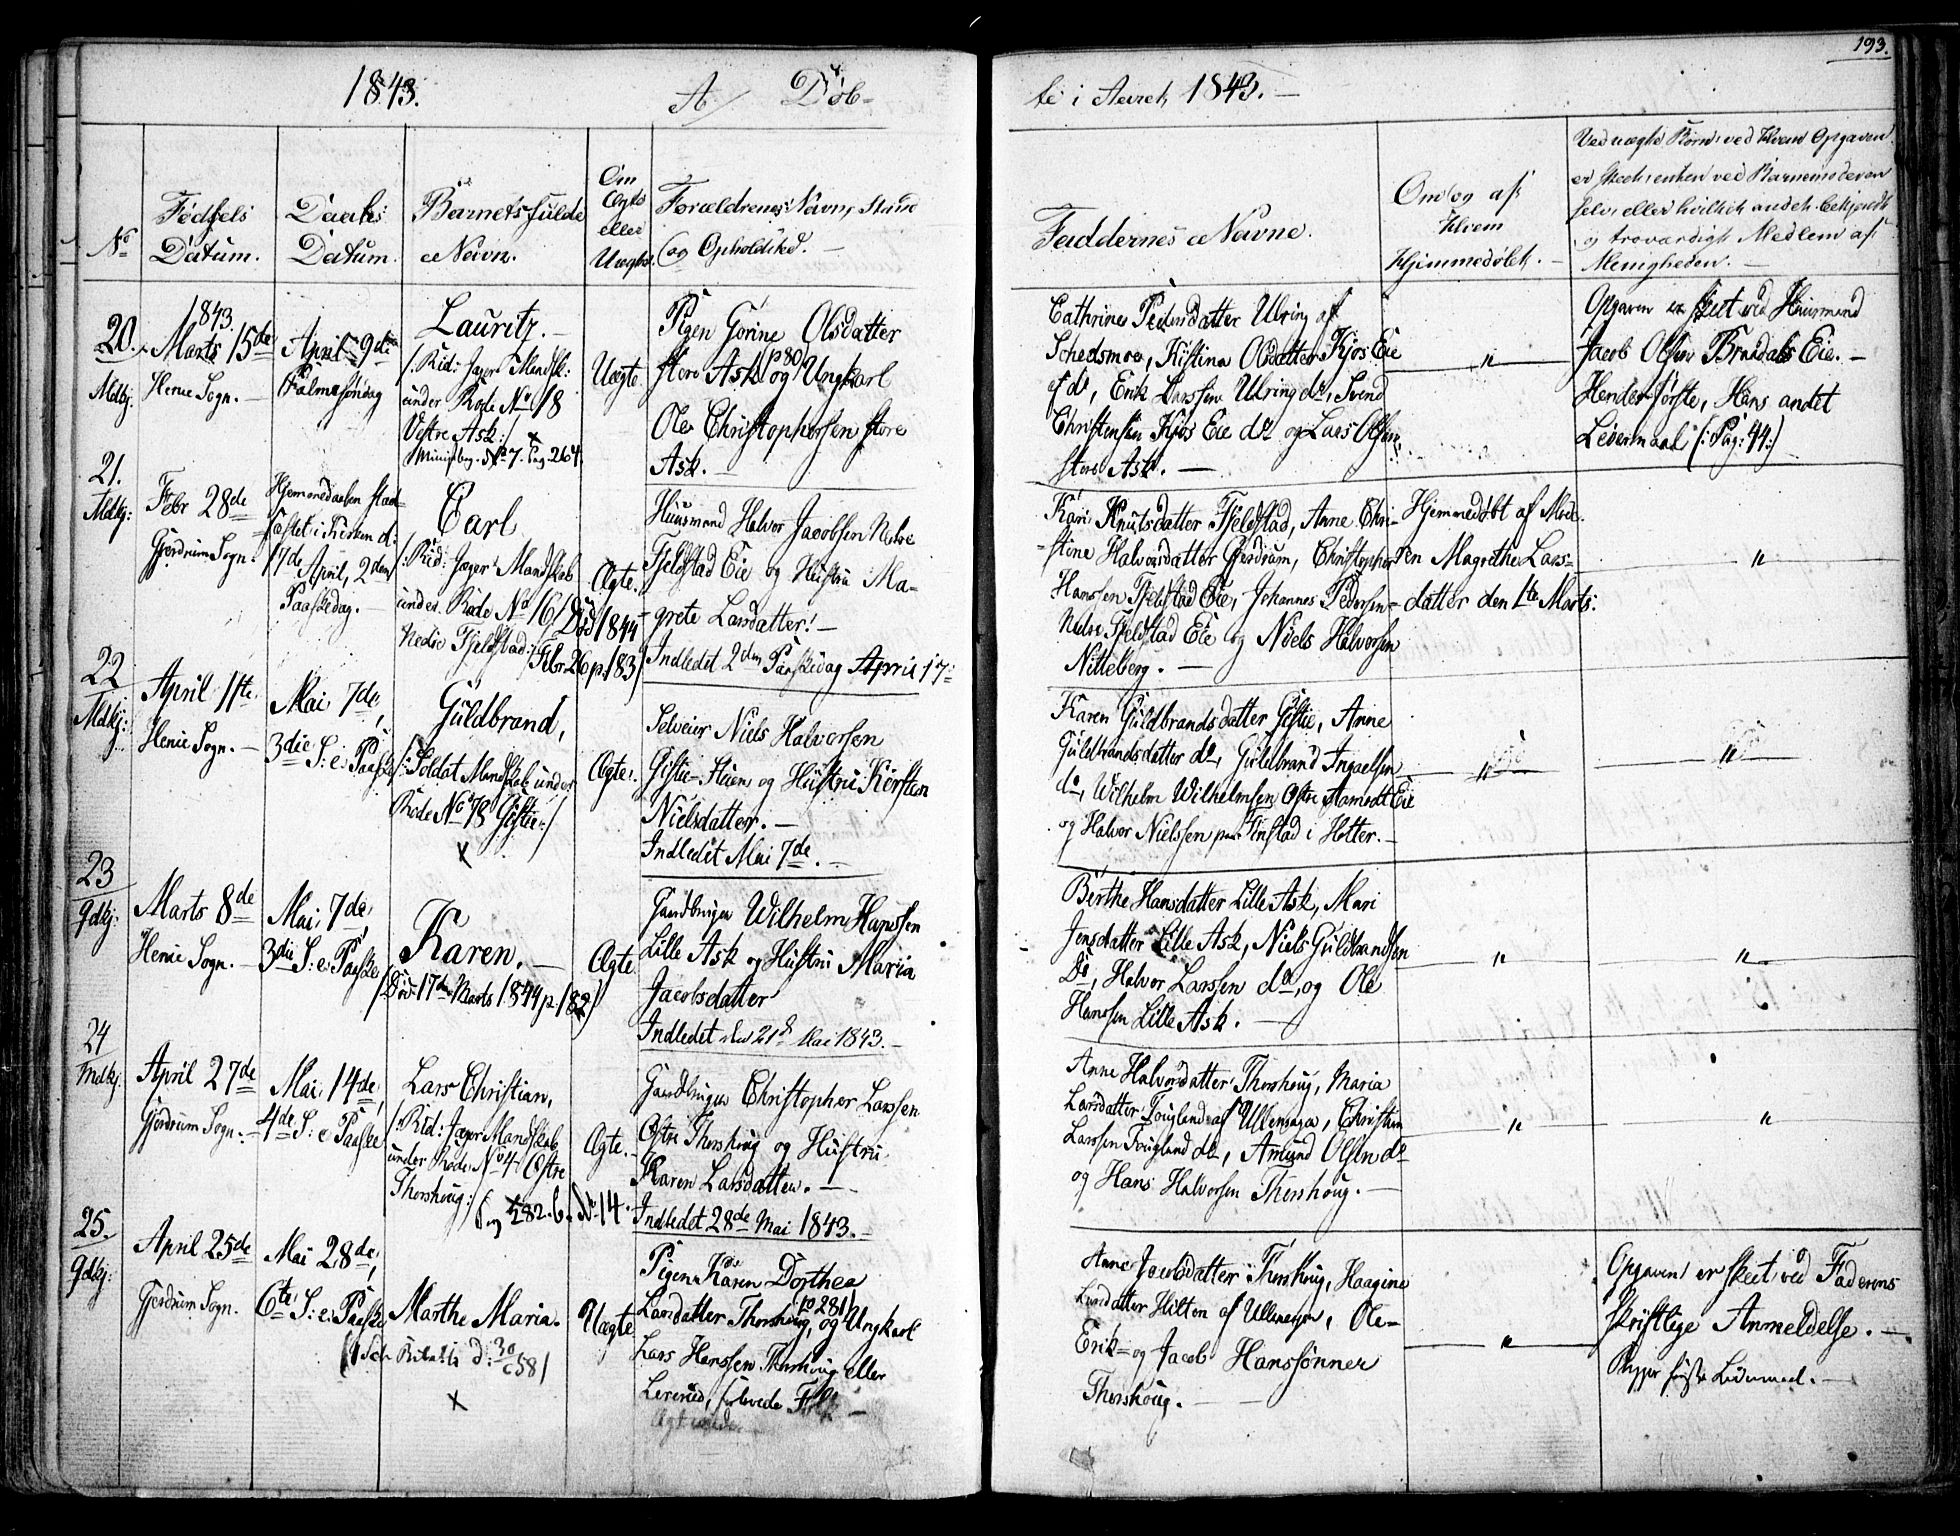 193.
1843.
A/ Døb-
te i Aaret 1843. -
No
Fødsels Datum.
Daabs Datum.
Barnets fulde Navn.
Om Ægte eller Uægte.
Forældrenes Navn, Stand
og Opholdsted. -
Faddernes Navne.
Om og af Hvem Hjemmedøbt. -
Ved uægte Børn, ved Hvem Opgaven
er skeet, enten ved Barnemoderen
selv, eller hvilket andet bekjendt
og troværdigt Medlem af
Menigheden. -
20.
Mdkj:
1843.
Marts 15de
Henie Sogn. -
April 9de
Palmesøndag
Lauritz. -
/: Rid: Jæger Mandsk:
under Rode No 18
Vestre Ask :/ x
No 7. Pag. 264.
Uægte
Pigen Gorine Olsdatter
store Ask p 80 og Ungkarl
Ole Christophersen store
Ask. -
Cathrine Pedersdatter Ulring af
Schedsmoe, Kistina Olsdatter Kjos Eie
af do, Erik Larssen Ulring do, Svend
Christensen Kjos Eie do og Lars Olsen
store Ask. -
"
Opgaven er skeet ved Huusmand
Jacob Olsen Brændals Eie. -
Hendes første, Hans andet
Leiermaal (: Pag: 44:)
21.
Mdkj:
Febr 28de
Gjerdrum Sogn.
Hjemmedaaben stad-
fæstet i Kirken d:
17de April, 2den
Paaskedag. -
Carl
/: Rid: Jæger Mandskab
under Rode No 16
Nedre Fjeldstad :/
Død 1844
Febr. 26 p. 183)
Ægte.
Huusmand Halvor Jacobsen Nedre
Fjeldstad Eie og Hustru Ma-
grete Larsdatter! -
Indledet 2den Paaskedag April 17:
Kari Knutsdatter Fjeldstad, Anne Chri-
stine Halvorsdatter Gjerdrum, Christopher
Hanssen Fjeldstad Eie, Johannes Pedersen
Nedre Fjeldstad Eie og Niels Halvorsen
Nitteberg. -
Hjemmedøbt af Mode-
ren Magrethe Lars-
datter den 1te Marts:
"
22
Mdkj:
April 11te
Henie Sogn. -
Mai 7de,
3die S: e: Paaske
Guldbrand,
/: Soldat Mandskab under
Rode No 78 Gistie :/
x
Ægte.
Selveier Niels Halvorsen
Gistie- og Hustru Kersten
Nielsdatter. -
Indledet Mai 7de. -
Karen Guldbrandsdatter Gistie, Anne
Guldbrandsdatter do, Guldbrand Ingaelsen
do, Wilhelm Wilhelmsen Østre Aamodt Eie
og Halvor Nielssen Finstad i Holter. -
"
"
23
Qdkj:
Marts 8de
Henie Sogn. -
Mai 7de,
3die S: e: Paaske
Karen. -
/ Død 17de Marts 1844 p. 182)
Ægte
Gaardbruger Wilhelm Hanssen
Lille Ask og Hustru Maria
Jacobsdatter
Indledet den 21de Mai 1843. -
Berthe Hansdatter Lille Ask, Mari
Jensdatter Lille Ask, Niels Guldbrandsen
Do, Halvor Larssen do, og Ole
Hanssen Lille Ask. -
"
"
24
Mdkj.
April 27de
Gjerdrum Sogn. -
Mai 14de,
4de S: e: Paaske
Lars Christian,
/: Rid: Jæger Mandskab
under Rode No 4 Østre
Thorshoug :/
Pag 282. b. No 14.
Ægte. -
Gaardbruger Christopher Larssen
Østre Thorshoug og Hustru
Karen Larsdatter. -
Indledet 28de Mai 1843. -
Anne Halvorsdatter Thorshoug, Maria
Larsdatter Fougland af Ullensager, Christian
Larssen Fougland do, Amund Olsen do
og Hans Halvorsen Thorshoug. -
"
"
25.
Qdkj:
April 25de
Gjerdrum Sogn.
Mai 28de,
6te S: e: Paaske
Marthe Maria.
x
Uægte
Pigen Karen Dorthea
Larsdatter Thorshoug, p 281 og Ungkarl
Lars Hanssen Thorshoug eller
Anne Jacobsdatter Thorshoug, Haagine
Larsdatter Hilton af Ullensager, Ole-
Erik- og Jacob Hanssønner
Thorshoug. -
"
Opgaven er skeet ved Faderens
skriftlige Anmeldelse. -
første Leiermaal. -